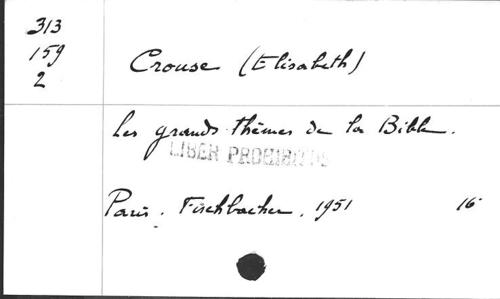 313
159
2
Crouse (Elisabeth)
Les grands thèmes de la Bible.
LIBER PROHIBITUS
Paris. Fischbacher. 1951 16°